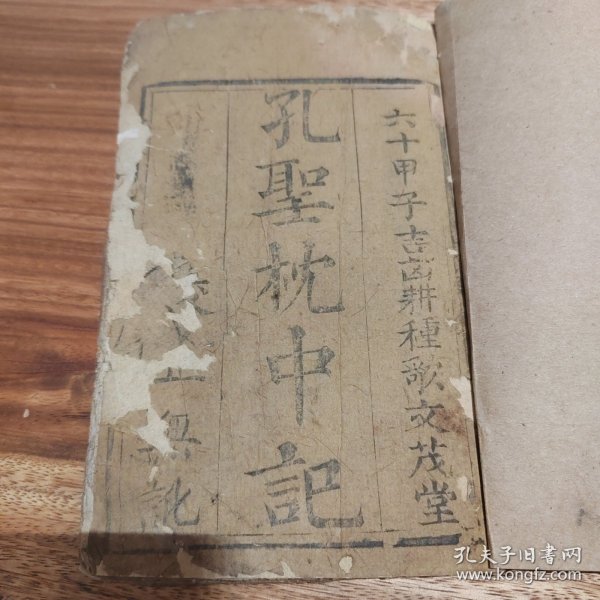 六十甲子吉凶耕種歌文茂堂
孔聖枕中記
無訛
孔夫子旧书网
www.kongfz.com